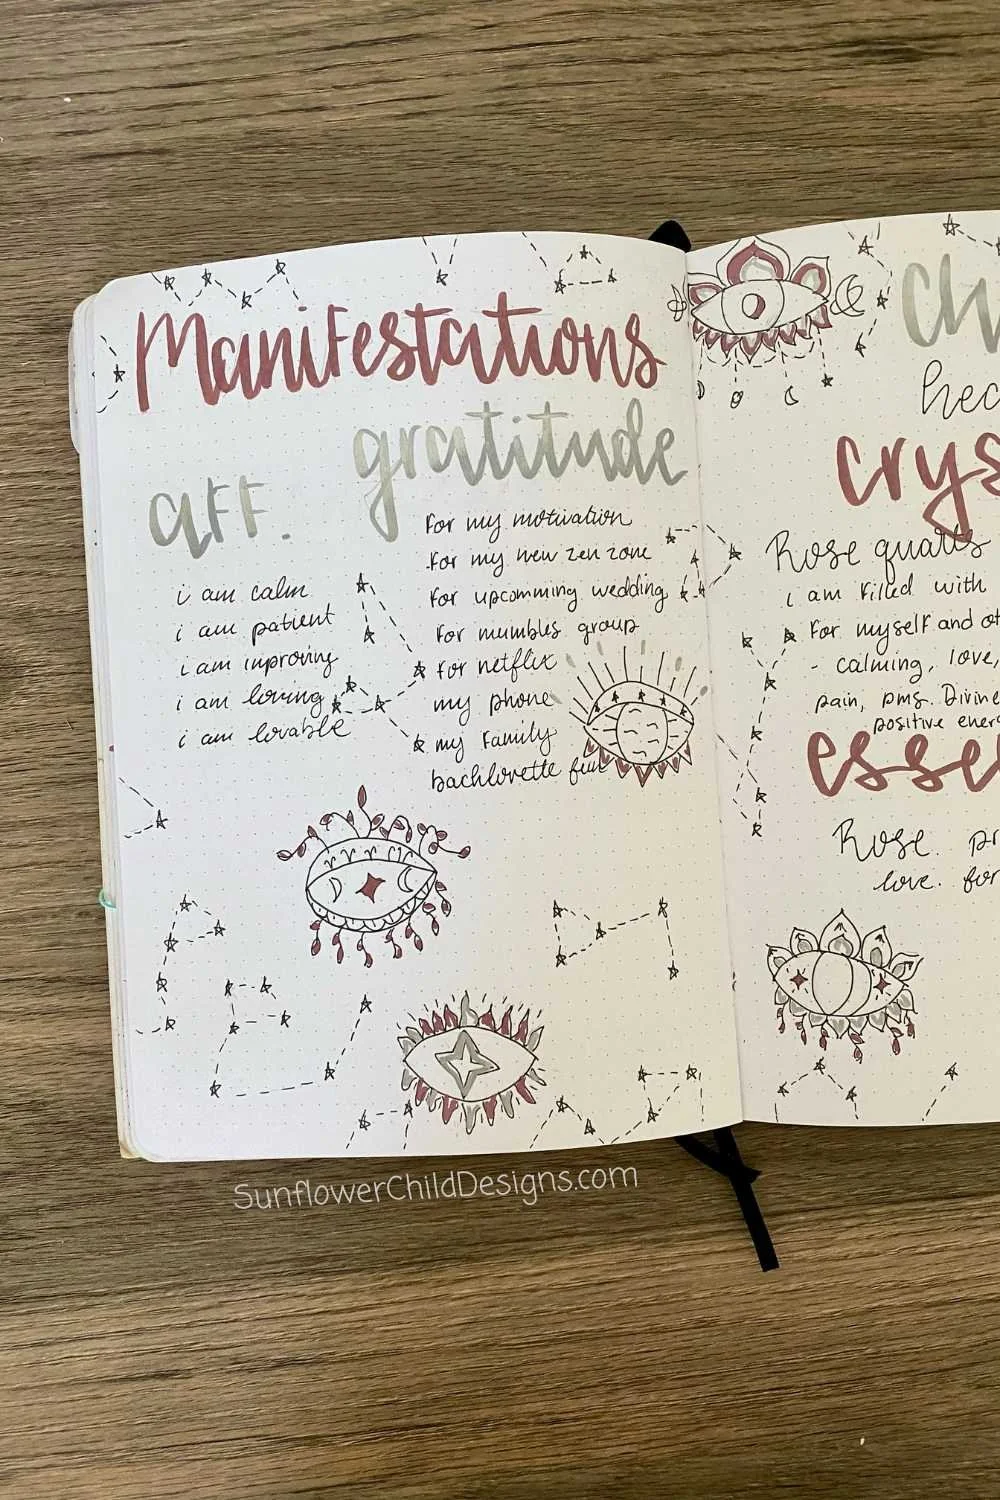 Manifestations
gratitude
aff.
i am calm
i am patient
i am inproving
i am loving
i am lovable
for my motivation
for my new zen zone
for upcomming wedding
for mumbles group
for netflix
my phone
my family
bachlorette fun
ch
hec
crys
Rose quarts
i am filled with
for myself and ot
- calming, love,
pain, pms. Divine
positive energ
esse
Rose. pr
love. for
SunflowerChildDesigns.com